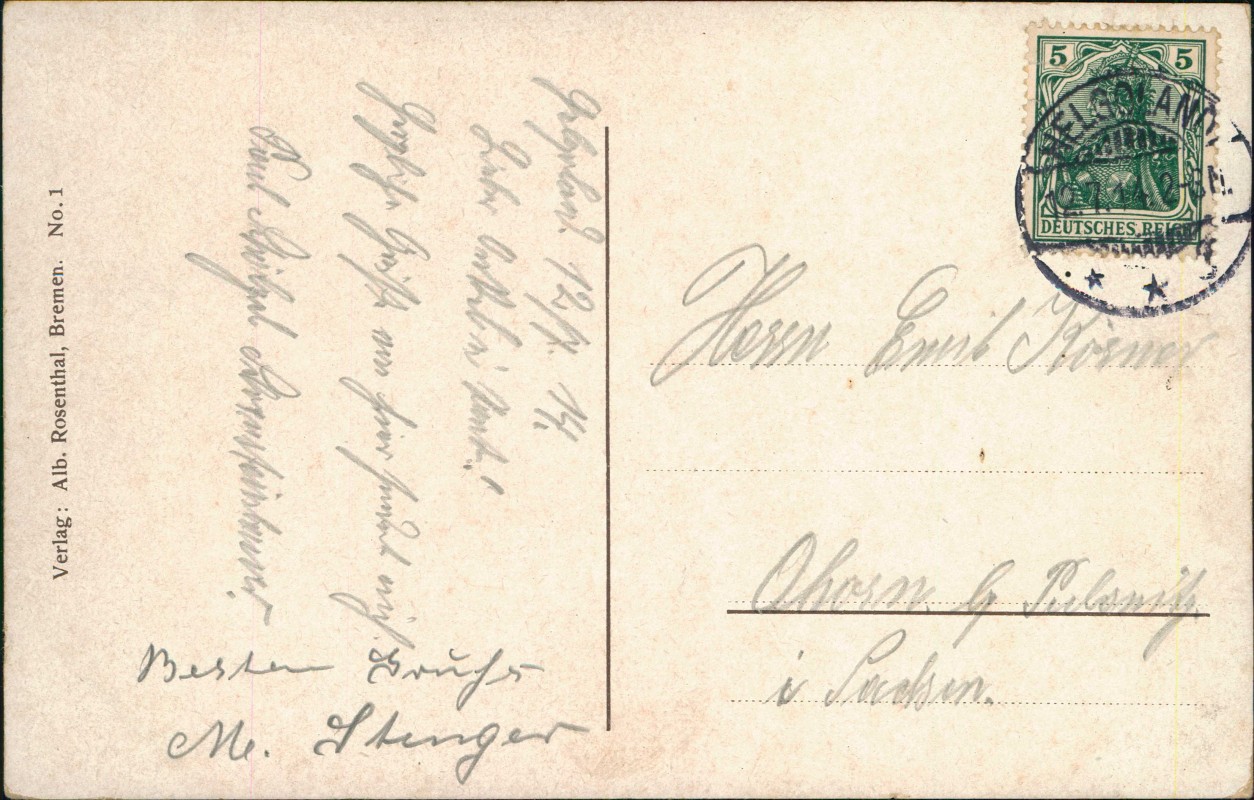 5 5
DEUTSCHES REICH
HELGOLAND
12.7.14. 2-3N.
Verlag: Alb. Rosenthal, Bremen. No. 1
Helgoland. 12/7. 14.
Herzliche Grüße von hier sendet
Paul
Besten Gruhs
M. Stenger
Herrn Emil Körner
Ohorn. b Pulsnitz
i Sachsen.